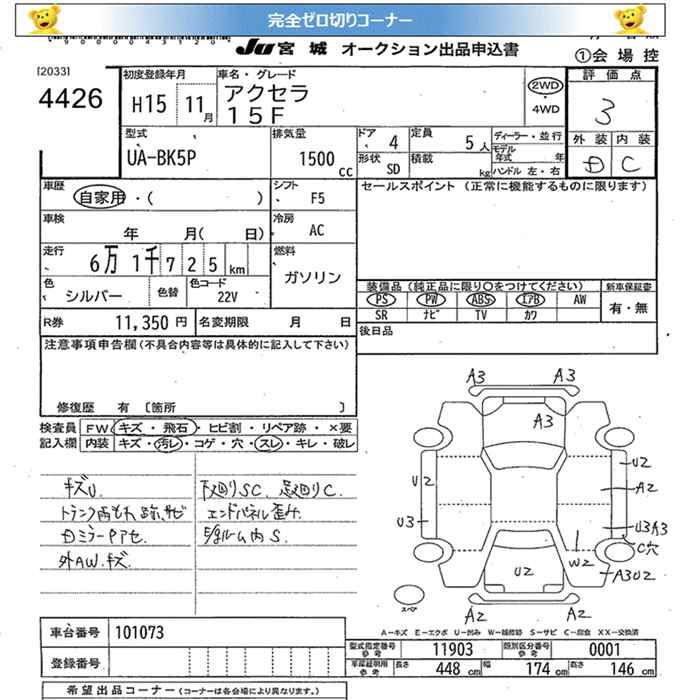 完全ゼロ切りコーナー
JU宮城 オークション出品申込書
①会場控
[2033]
4426
初度登録年月
H15 11月
車名・グレード
アクセラ
15F
2WD
・
4WD
評価点
3
外装 内装
D C
型式
UA-BK5P
排気量
1500 CC
ドア 4
形状 SD
定員 5人
積載 kg
ディーラー・並行
モデル年式 年
ハンドル 左・右
車歴
自家用・( )
シフト F5
セールスポイント (正常に機能するものに限ります)
車検
年 月( 日)
冷房 AC
走行
6万 1千 7 2 5 km
燃料
ガソリン
色
シルバー
色替
色コード
22V
装備品(純正品に限り○をつけてください)
新車保証書
PS PW ABS エアB AW
SR ナビ TV カワ
有・無
R券 11,350円
名変期限 月 日
後日品
注意事項申告欄(不具合内容等は具体的に記入して下さい)
修復歴 有 〔箇所 〕
検査員
記入欄
FW キズ・飛石・ヒビ割・リペア跡・×要
内装 キズ・汚レ・コゲ・穴・スレ・キレ・破レ
キズU.
下廻りSC. 足廻りC.
エンドパネル歪み.
外AW.キズ
A3 A3
A3
U2
U2
A2
U3
U3A3
C穴
W2
U2
A3U2
A2 A2
スペア
A-キズ E-エクボ U-凹み W-補修跡 S-サビ C-腐食 XX-交換済
車台番号 101073
登録番号
型式指定番号 参考 11903
類別区分番号 参考 0001
車庫証明用 参考 長さ 448 cm 幅 174 cm 高さ 146 cm
希望出品コーナー (コーナーは各会場により異なります。)